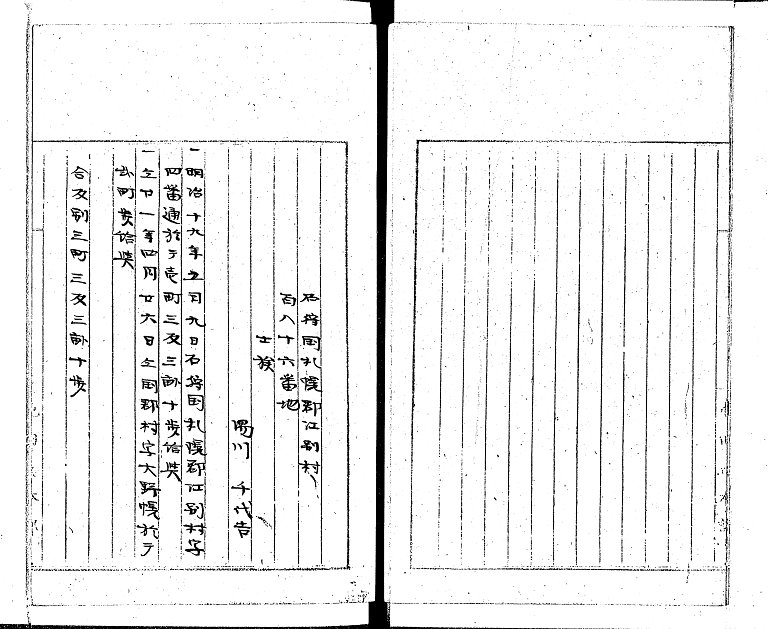 石狩国札幌郡江別村
百八十六番地
士族
千代吉
一明治十九年五月九日石狩国札幌郡江別村字
四番通於テ壱町三反三畝十歩給与
一仝廿一年四月廿六日仝国郡村字大野幌於テ
弐町歩給与
合反別三町三反三畝十歩